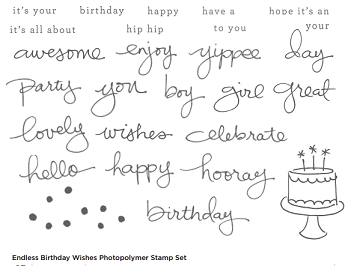 it's your birthday happy have a hope it's an
it's all about hip hip to you your
awesome enjoy yippee day
party you boy girl great
lovely wishes celebrate
hello happy hooray
birthday
Endless Birthday Wishes Photopolymer Stamp Set